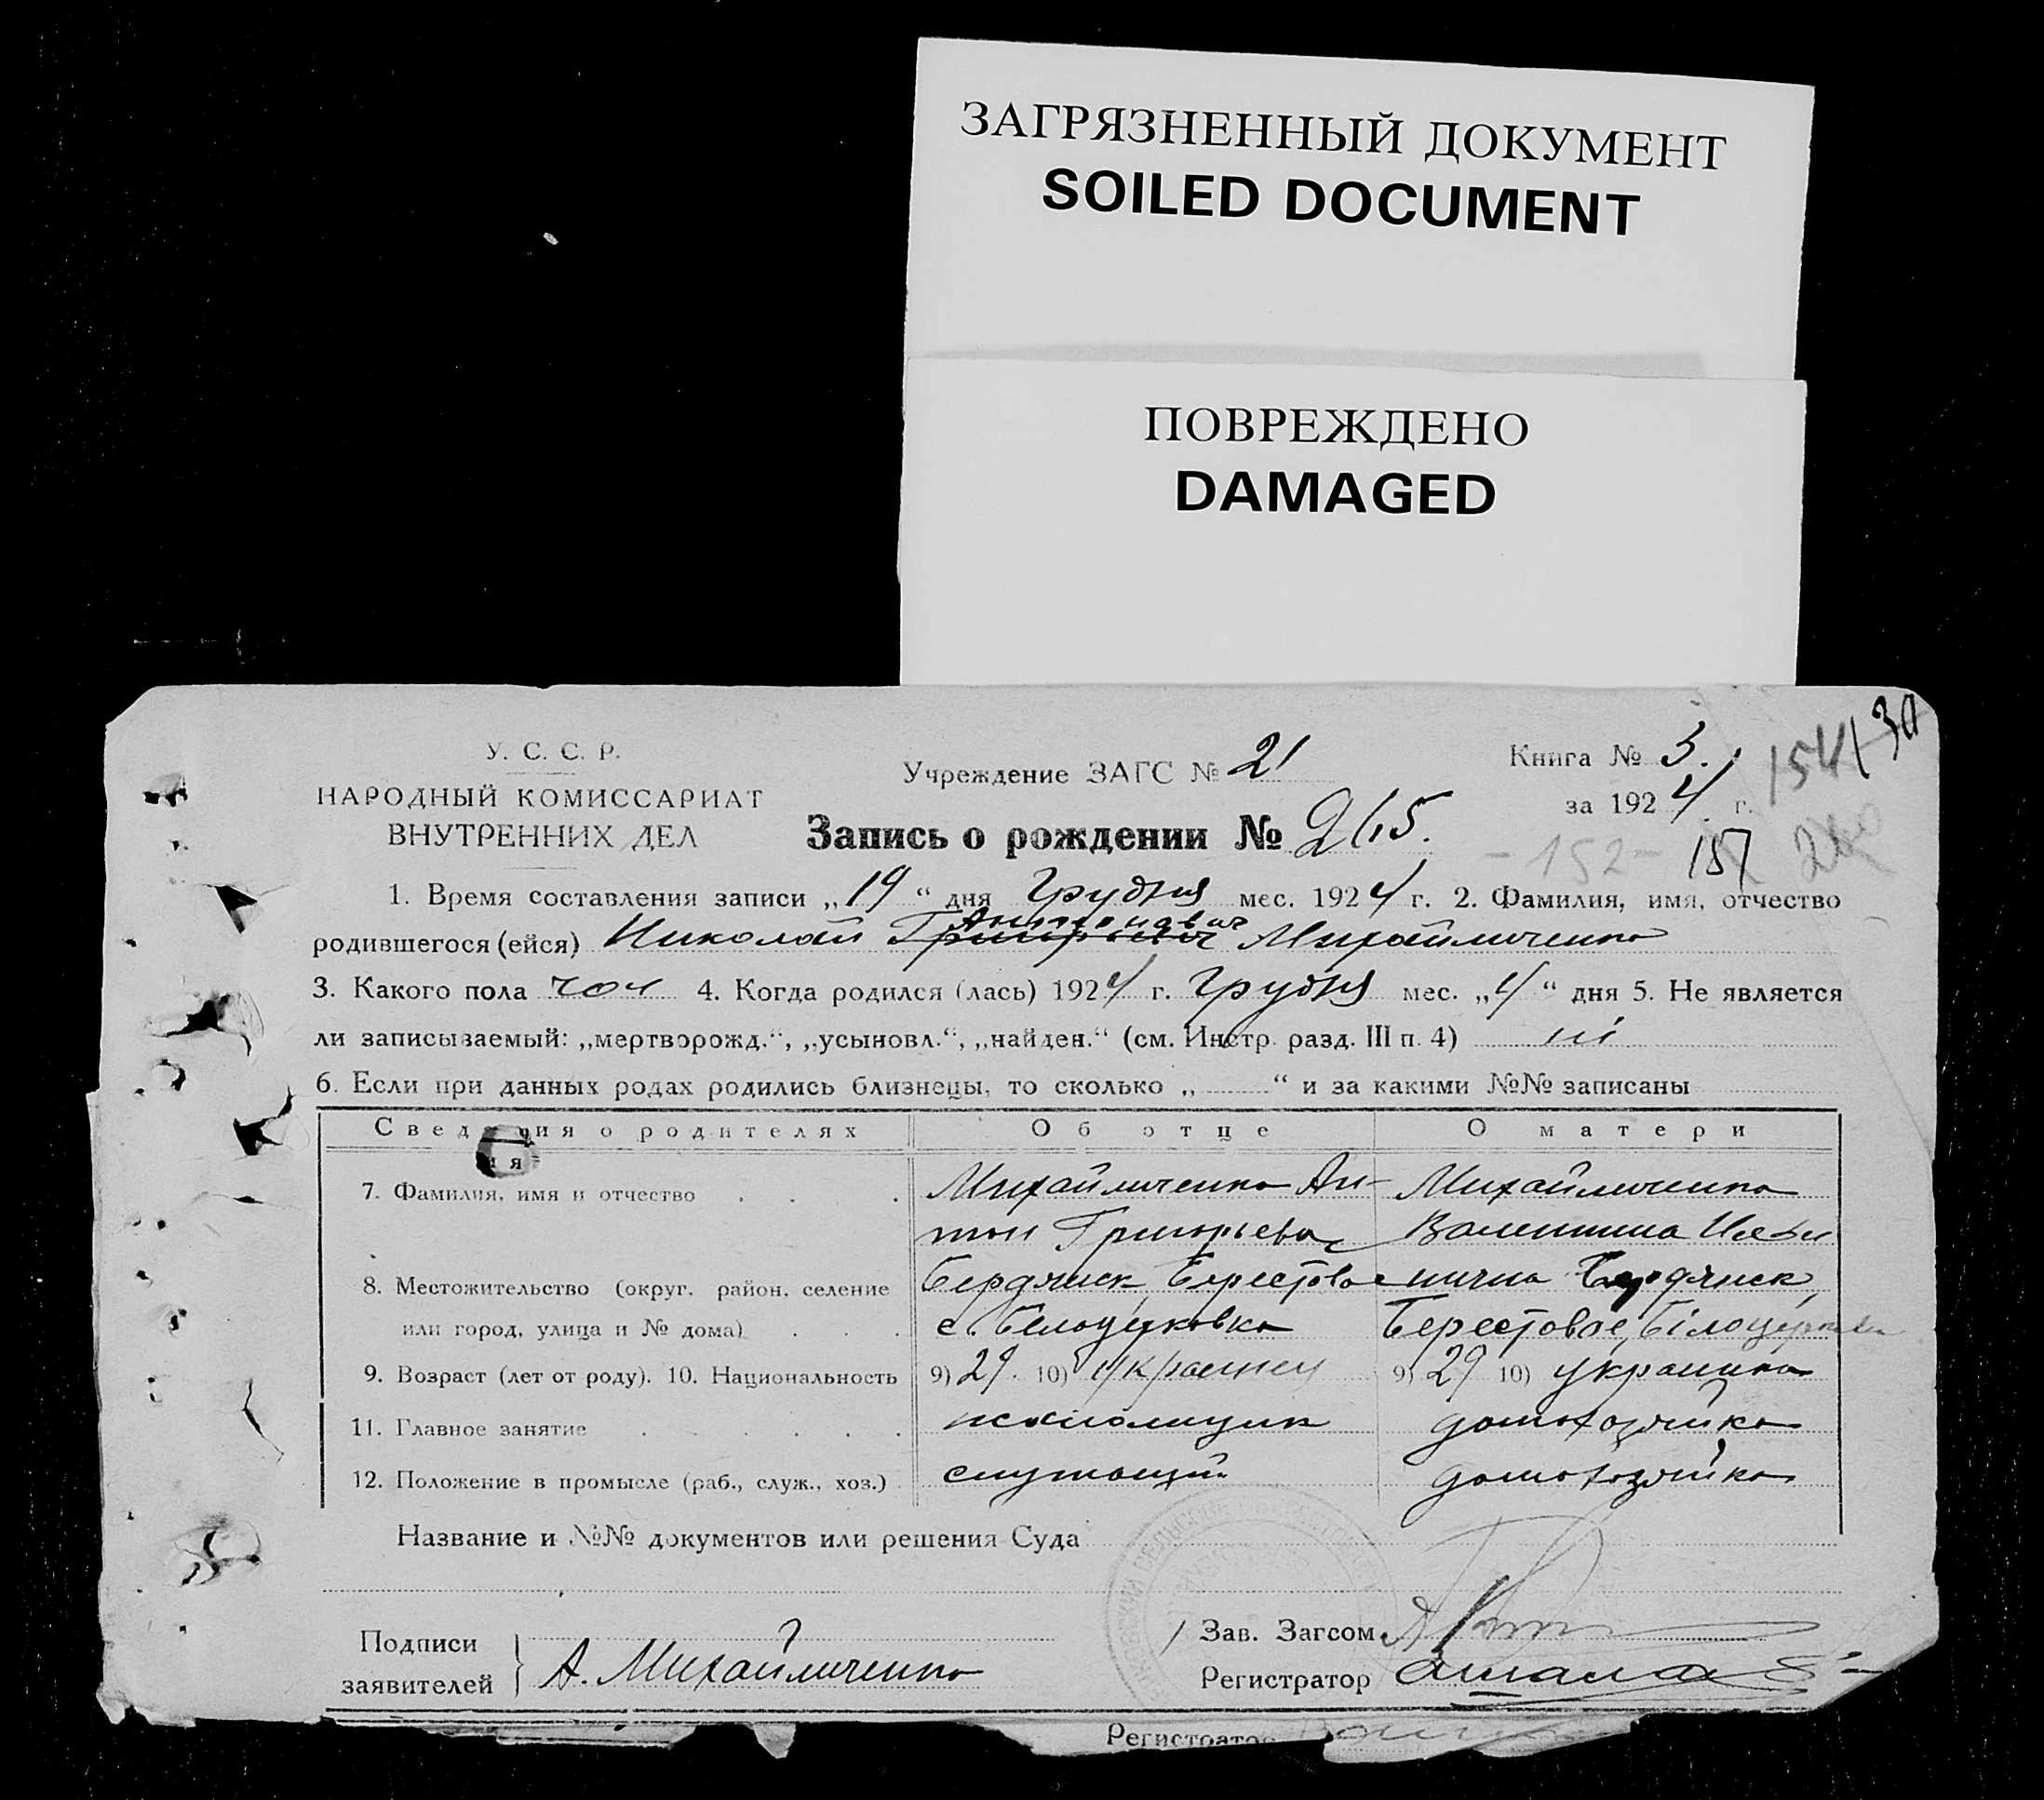 ЗАГРЯЗНЕННЫЙ ДОКУМЕНТ
SOILED DOCUMENT
ПОВРЕЖДЕНО
DAMAGED
У. С. С. Р.
НАРОДНЫЙ КОМИССАРИАТ
ВНУТРЕННИХ ДЕЛ
Учреждение ЗАГС № 21
Книга № 3.
за 1924 г.
154
30
Запись о рождении № 215.
-152- 157
1. Время составления записи „19“ дня Грудня мес. 1924 г. 2. Фамилия, имя, отчество
Антонович
родившегося (ейся) Николай Григорьевич Михайличенко
3. Какого пола чол 4. Когда родился (лась) 1924 г. Грудня мес. „4“ дня 5. Не является
ли записываемый: „мертворожд.“, „усыновл.“, „найден.“ (см. Инстр. разд. III п. 4) ні
6. Если при данных родах родились близнецы, то сколько „ “ и за какими №№ записаны
Сведения о родителях Об отце О матери
ия
7. Фамилия, имя и отчество . . . Михайличенко Ан- Михайличенко
тон Григорьевич Валентина Ильи
8. Местожительство (округ, район, селение Бердянск, Берестовое нична Бердянск,
или город, улица и № дома) . . . с. Белоцерковка Берестовое, Білоцерковка
9. Возраст (лет от роду). 10. Национальность 9) 29. 10) Украинец 9) 29 10) Украинка
11. Главное занятие . . . . . . домохозяйка
12. Положение в промысле (раб., служ., хоз.) служащий домохозяйка
Название и №№ документов или решения Суда
Подписи
заявителей } А. Михайличенко
Зав. Загсом
Регистратор
Регистратор